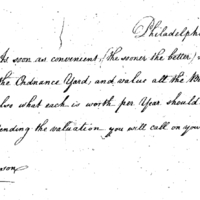 Philadelphi
As soon as convenient (the sooner the better)
the Ordnance Yard, and value all the
lse what each is worth per Year should
ending the valuation you will call on you
son